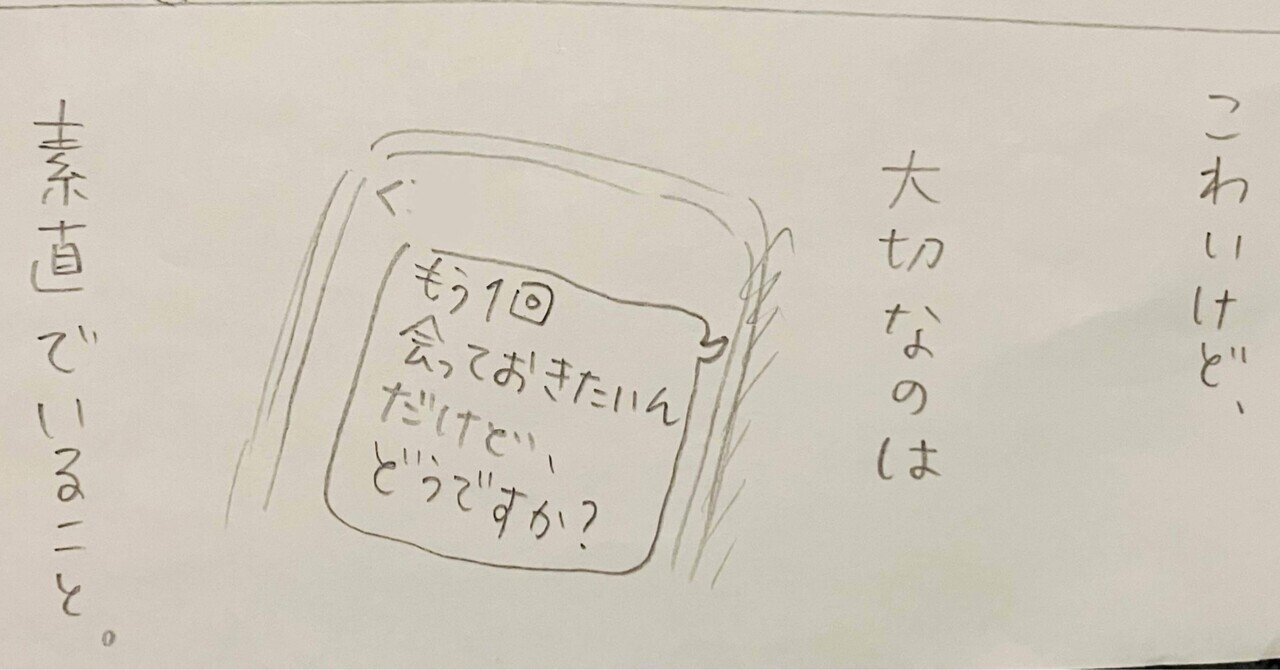 こわいけど、
大切なのは
く
もう1回
会っておきたいん
だけど、
どうですか?
素直でいること。